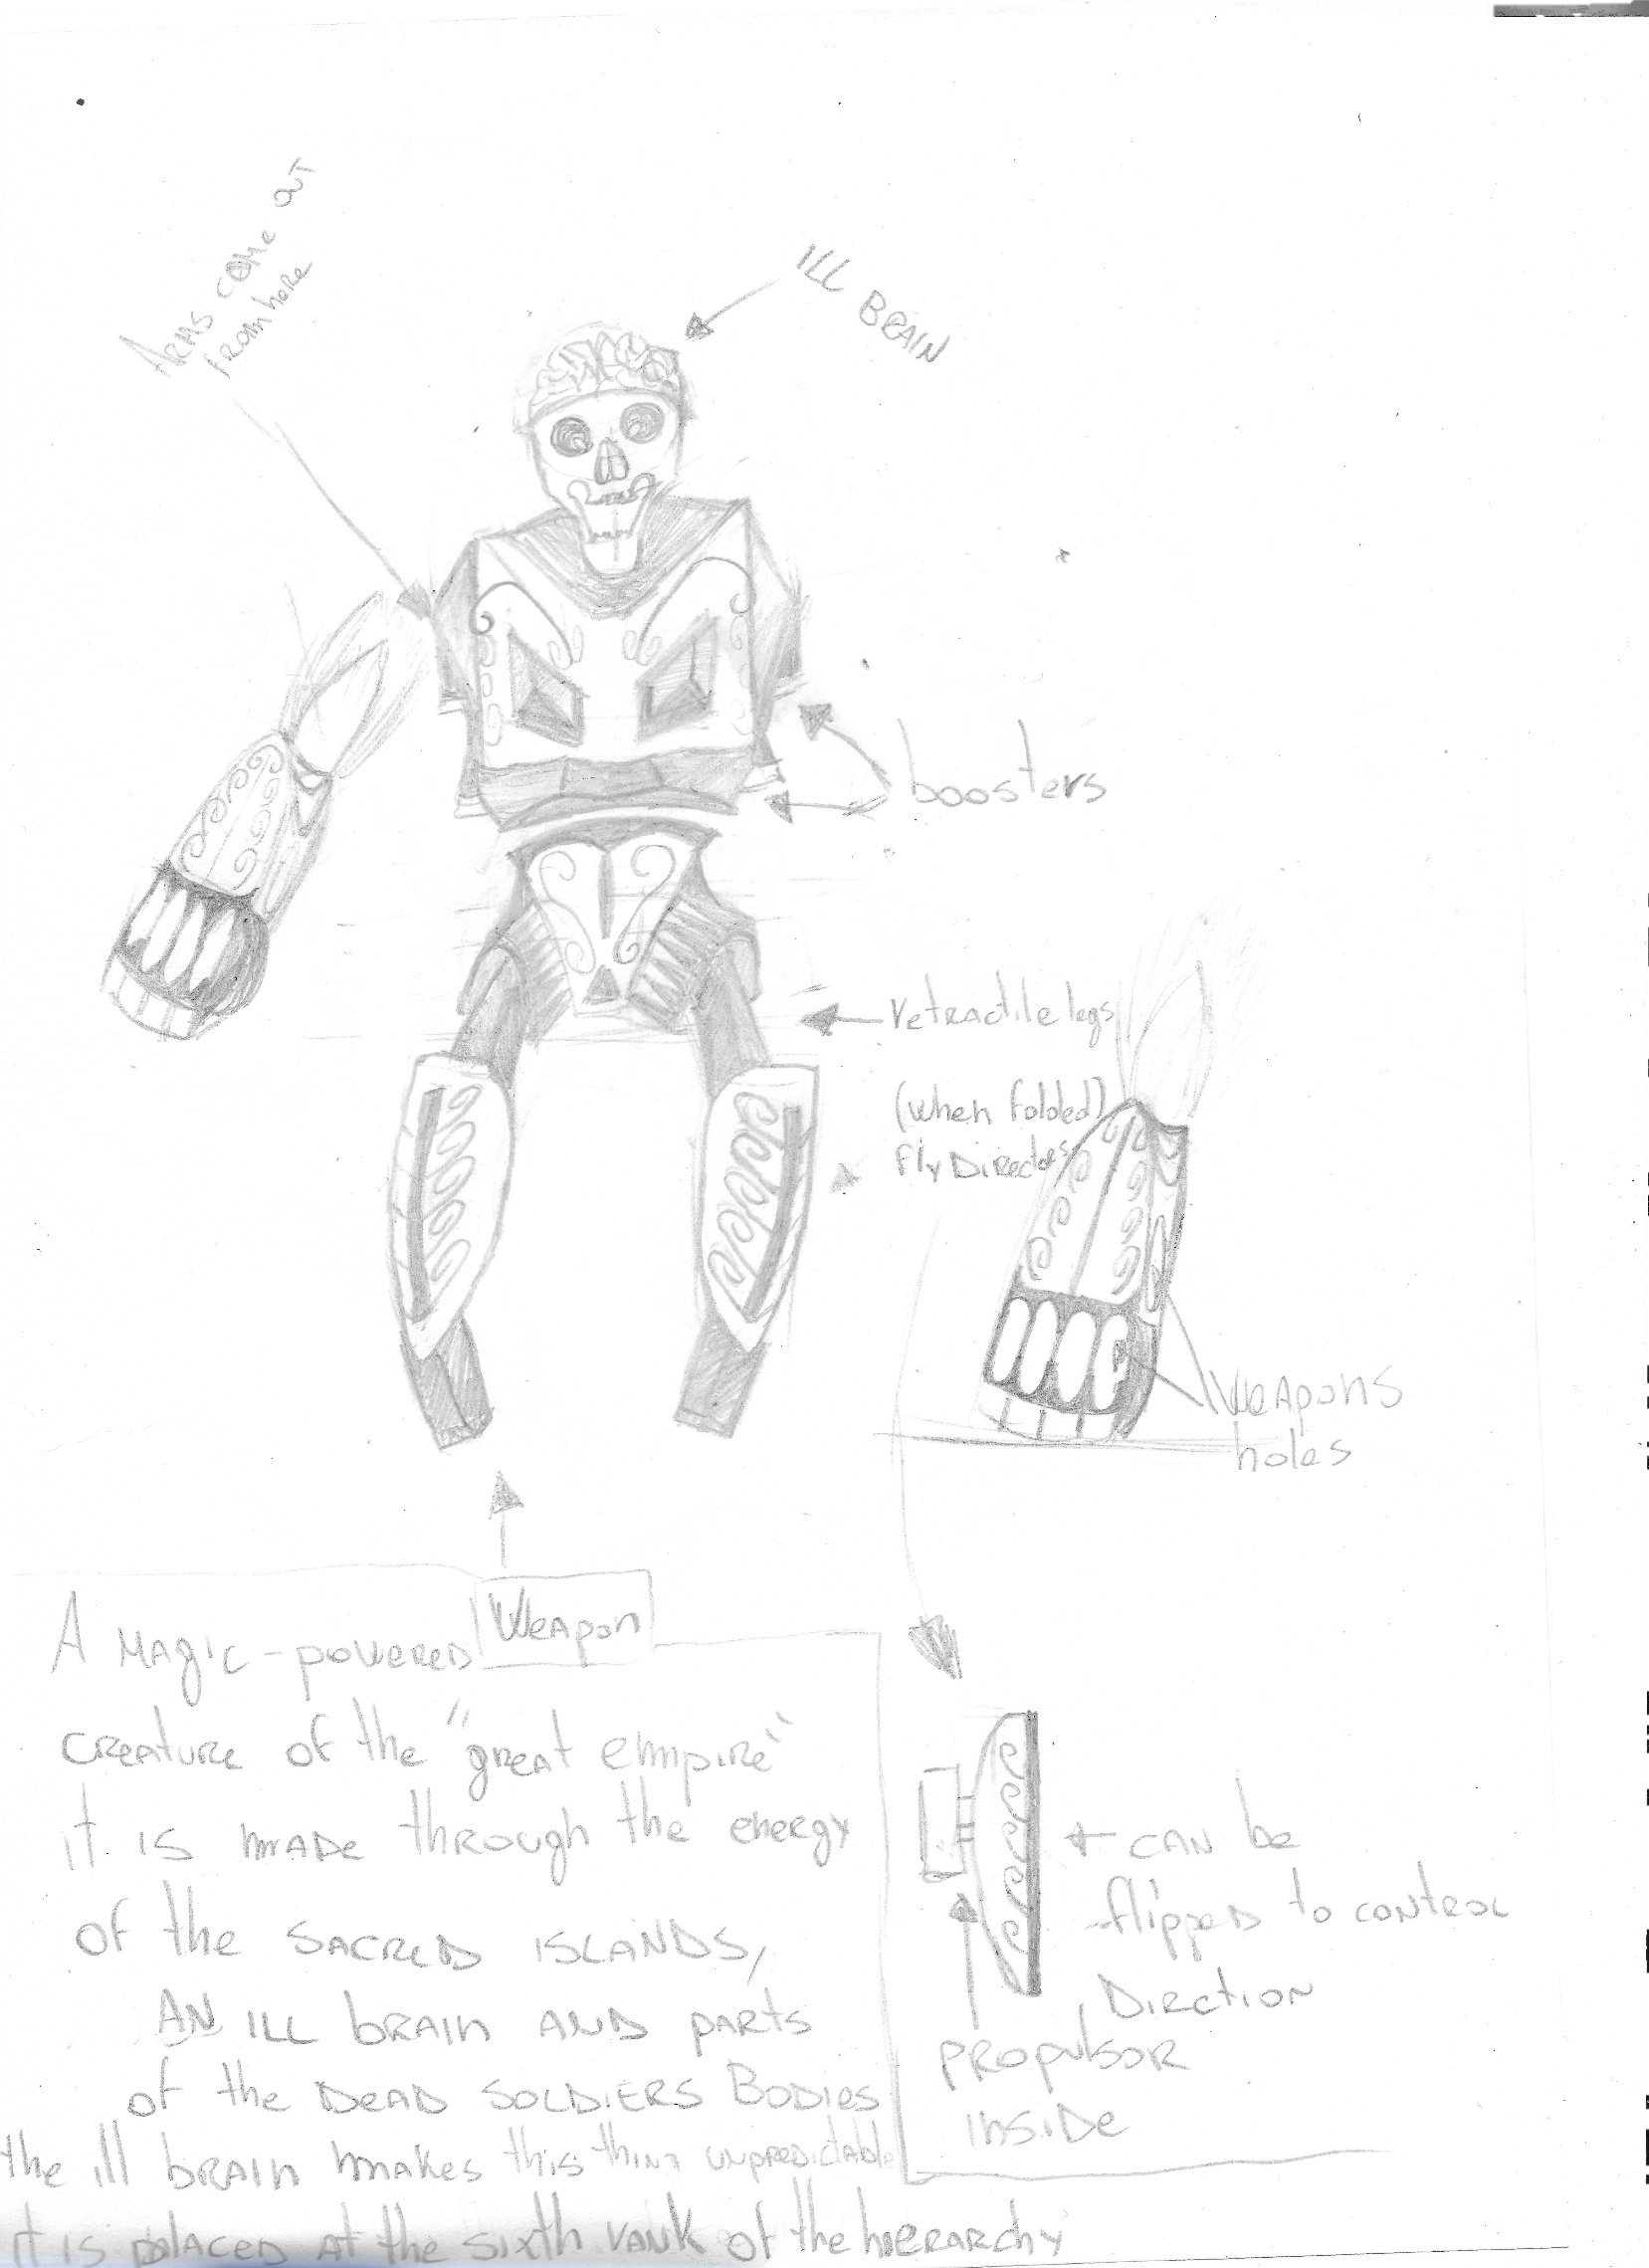 ARMS COME OUT
FROM here
ILL BRAIN
boosters
retractile legs
(when folded)
fly Directors
WEAPONS
holes
Weapon
A MAgIC-powered
creature of the "great empire"
it is made through the energy
of the SACRED ISLANDS,
AN ILL brain AND parts
of the DEAD SOLDIERS Bodies
the ill brain makes this thing unpredictable
it is placed at the sixth rank of the hierarchy
CAN be
flipped to control
Dirction
propulsor
inside